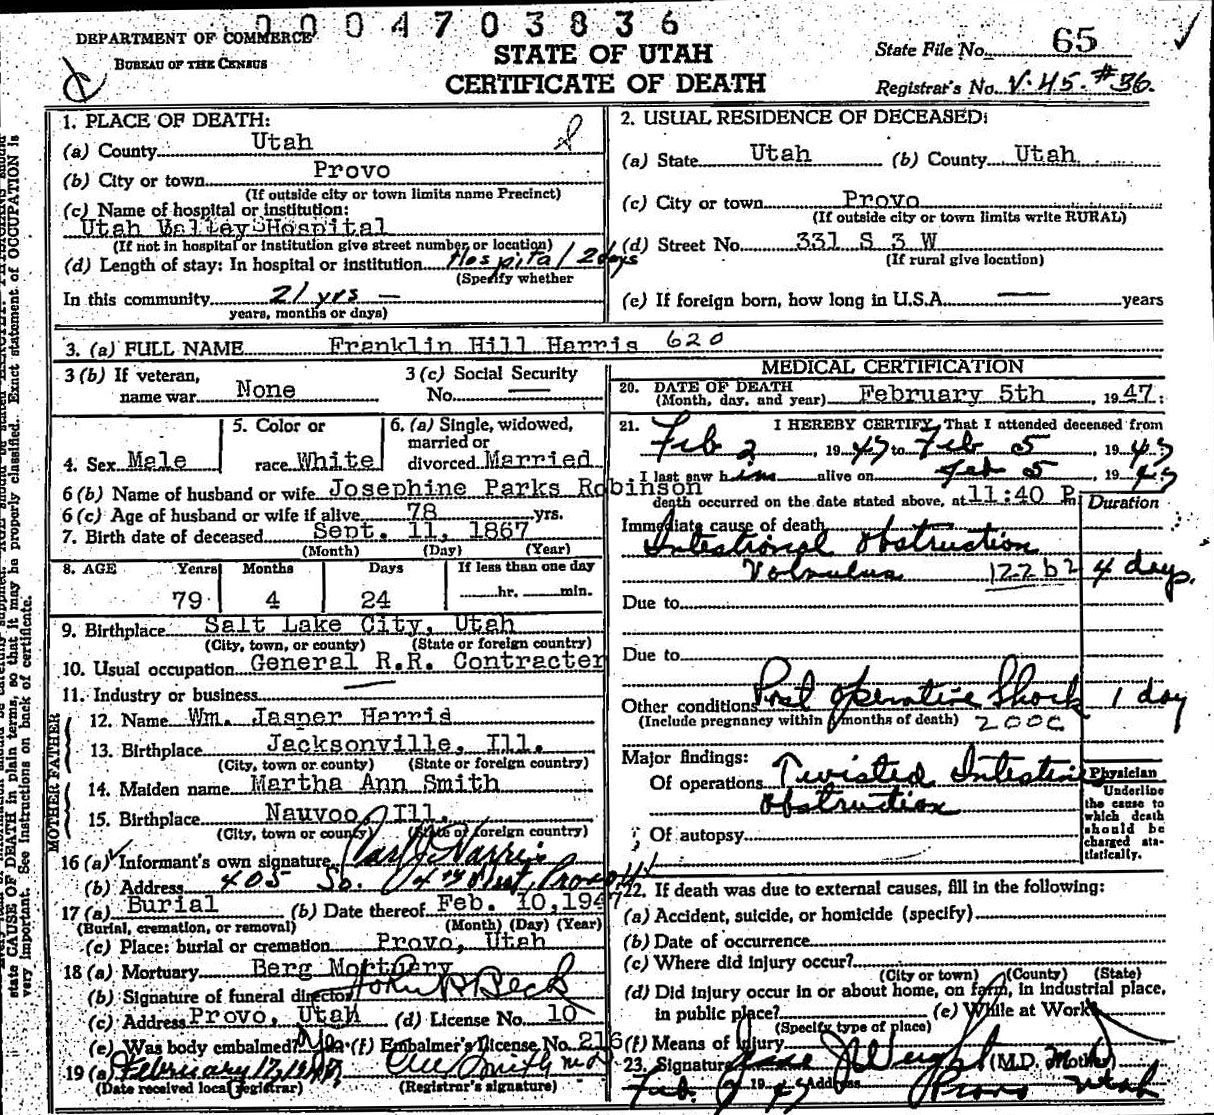 2 0 0 4 7 0 3 8 3 6
DEPARTMENT OF COMMERCE
BUREAU OF THE CENSUS
STATE OF UTAH
CERTIFICATE OF DEATH
State File No. 65
Registrar's No. V-45-#36.
1. PLACE OF DEATH:
(a) County Utah
(b) City or town Provo
(If outside city or town limits name Precinct)
(c) Name of hospital or institution:
Utah Valley Hospital
(If not in hospital or institution give street number or location)
(d) Length of stay: In hospital or institution Hospital 2 days
(Specify whether
In this community 21 yrs —
years, months or days)
2. USUAL RESIDENCE OF DECEASED:
(a) State Utah (b) County Utah
(c) City or town Provo
(If outside city or town limits write RURAL)
(d) Street No. 331 S 3 W
(If rural give location)
(e) If foreign born, how long in U.S.A. — years
3. (a) FULL NAME Franklin Hill Harris 620
3 (b) If veteran, name war None
3 (c) Social Security No. —
4. Sex Male
5. Color or race White
6. (a) Single, widowed, married or divorced Married
6 (b) Name of husband or wife Josephine Parks Robinson
6 (c) Age of husband or wife if alive 78 yrs.
7. Birth date of deceased Sept. 11, 1867
(Month) (Day) (Year)
8. AGE Years Months Days If less than one day
79 4 24 hr. min.
9. Birthplace Salt Lake City, Utah
(City, town, or county) (State or foreign country)
10. Usual occupation General R.R. Contracter
11. Industry or business —
FATHER
12. Name Wm. Jasper Harris
13. Birthplace Jacksonville, Ill.
(City, town or county) (State or foreign country)
MOTHER
14. Maiden name Martha Ann Smith
15. Birthplace Nauvoo Ill.
(City, town or county) (State or foreign country)
16 (a) Informant's own signature Harris
(b) Address 405 So. 4th West, Provo
17 (a) Burial (b) Date thereof Feb. 10, 1947
(Burial, cremation, or removal) (Month) (Day) (Year)
(c) Place: burial or cremation Provo, Utah
18 (a) Mortuary Berg Mortuary
(b) Signature of funeral director John Beck
(c) Address Provo, Utah (d) License No. 10
(e) Was body embalmed? (f) Embalmer's License No. 216
19 (a) February 17, 1947 Smith MD
(Date received local registrar) (Registrar's signature)
MEDICAL CERTIFICATION
20. DATE OF DEATH
(Month, day, and year) February 5th, 1947.
21. I HEREBY CERTIFY, That I attended deceased from
Feb 2, 1947 to Feb 5, 1947
I last saw him alive on Feb 5, 1947
death occurred on the date stated above, at 11:40 P m
Duration
Immediate cause of death
Intestional Obstruction
Volvulus 122b2 4 days.
Due to
Due to
Other conditions Post Operative Shock 1 day
(Include pregnancy within 3 months of death) 200C
Major findings:
Of operations Twisted Intestine
Obstruction
Of autopsy
Physician
Underline
the cause to
which death
should be
charged sta-
tistically.
22. If death was due to external causes, fill in the following:
(a) Accident, suicide, or homicide (specify)
(b) Date of occurrence
(c) Where did injury occur?
(City or town) (County) (State)
(d) Did injury occur in or about home, on farm, in industrial place,
in public place? (e) While at Work
(Specify type of place)
(f) Means of Injury
23. Signature J. Weight (M.D.
Feb. 1947 Address Provo Utah
state CAUSE OF DEATH in plain terms, so that it may be properly classified. Exact statement of OCCUPATION is
very important. See instructions on back of certificate.